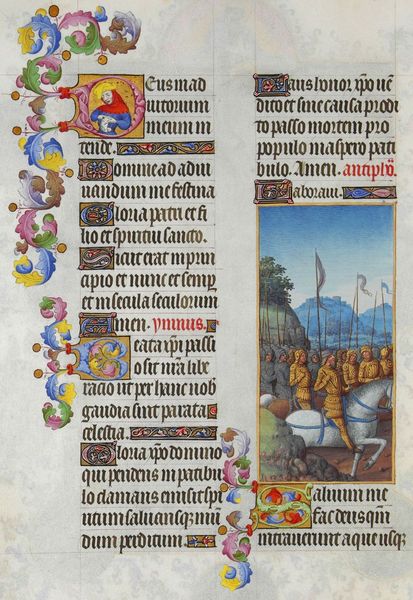 Deus in ad
iutorium
meum in
tende.
Domine ad adiu
uandum me festina
Gloria patri et fi
lio et spiritui sancto.
Sicut erat in prin
cipio et nunc et semp̱
et in secula seculorum
Amen. ymnus.
Beata xp̄i passi
o sit nr̄a libe
racio ut per hanc nob̄
gaudia sint parata
celestia.
Gloria xp̄o domino
qui pendens in patibu
lo clamans emisit spi
ritum saluansqꝫ mū
dum perditum.
Laus honor xp̄o uē
dito et sine causa prodi
to passo mortem pro
populo in aspero pati
bulo. Amen. antiph̄o
Laboraui.
Saluum me
fac deus qm̄
intrauerunt aque usqꝫ